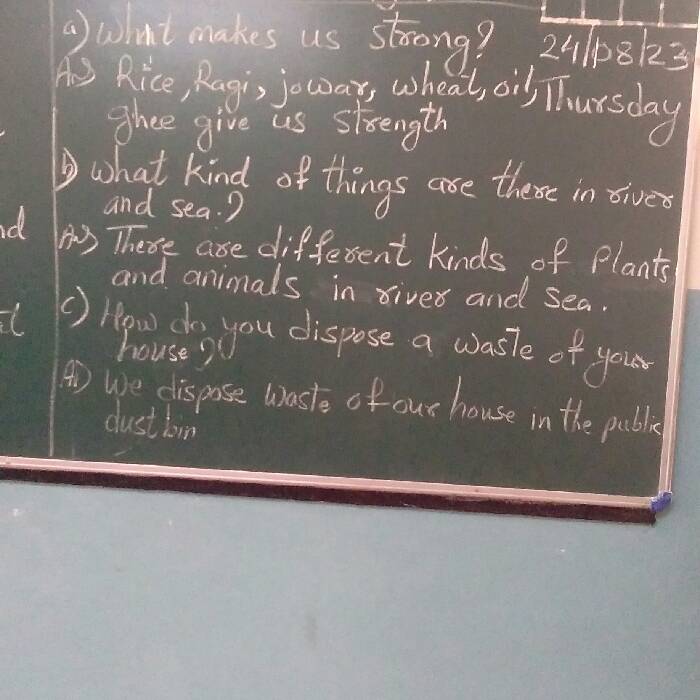 a) What makes us strong? 24/08/23
Ans Rice, Ragi, jowar, wheat, oil, Thursday
ghee give us strength
b) what kind of things are there in river
and sea.?
Ans There are different kinds of Plants
and animals in river and sea.
c) How do you dispose a waste of your
house?
A) We dispose waste of our house in the public
dust bin